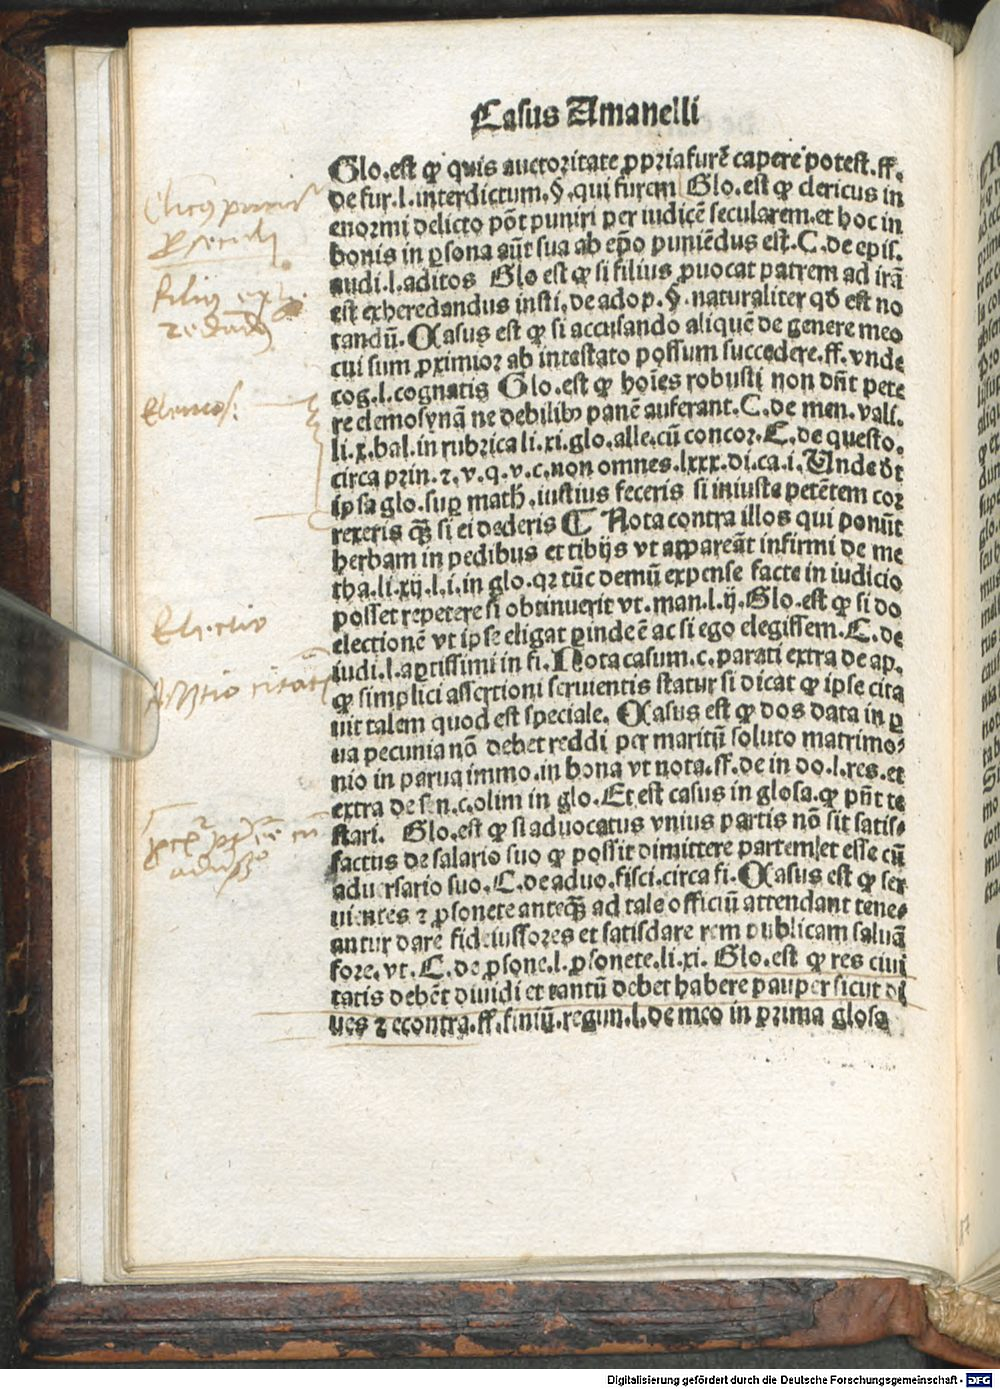 Casus Amanelli
Glo.est ꝙ quis auctoritate ꝓpria furē capere potest.ff.
de fur.l.interdictum.§.qui furem Glo.est ꝙ clericus in
enormi delicto pōt puniri per iudicē secularem.et hoc in
bonis in ꝑsona aūt sua ab ep̄o puniēdus est.C.de epis.
audi.l.aditos Glo est ꝙ si filius ꝓuocat patrem ad irā
est exheredandus insti.de adop.§.naturaliter qd̄ est no
tandū.Casus est ꝙ si accusando aliquē de genere meo
cui sum ꝓximior ab intestato possum succedere.ff.vnde
cog.l.cognatis Glo.est ꝙ hoīes robusti non dn̄t pete
re elemosynā ne debilibꝰ panē auferant.C.de men.vali.
li.x.bal.in rubrica li.xi.glo.alle.cū concor.C.de questo.
circa prin.⁊.v.q.v.c.non omnes.lxxx.di.ca.i.Unde dr̄
ipsa glo.suꝑ math.iustius feceris si iniuste petētem cor
rexeris qꝫ̄ si ei dederis ¶ Nota contra illos qui ponūt
herbam in pedibus et tibijs vt appareāt infirmi de me
tha.li.xij.l.i.in glo.qꝛ tūc demū expense facte in iudicio
posset repetere si obtinuerit vt.man.l.ij.Glo.est ꝙ si do
electionē vt ipse eligat ꝑinde ē ac si ego elegissem.C.de
iudi.l.aꝑtissimi in fi.Nota casum.c.parati extra de ap.
ꝙ simplici assertioni seruientis statur si dicat ꝙ ipse cita
uit talem quod est speciale. Casus est ꝙ dos data in ꝑ
ua pecunia nō debet reddi per maritū soluto matrimo⸗
nio in parua immo.in bona vt nota.ff.de in do.l.res.et
extra de sen.c.olim in glo.Et est casus in glosa.ꝙ pn̄t te
stari. Glo.est ꝙ si aduocatus vnius partis nō sit satis⸗
factus de salario suo ꝙ possit dimittere partem et esse cū
aduersario suo.C.de aduo.fisci.circa fi.Casus est ꝙ ser
uientes ⁊ ꝑsonete anteqꝫ̄ ad tale officiū attendant tene⸗
antur dare fideiussores et satisdare rem publicam saluā
fore.vt.C.de ꝑsone.l.ꝑsonete.li.xi. Glo.est ꝙ res ciui
tatis debēt diuidi et tantū debet habere pauper sicut di
ues ⁊ econtra.ff.finiū.regun.l.de meo in prima glosa
Electio
Digitalisierung gefördert durch die Deutsche Forschungsgemeinschaft - DFG